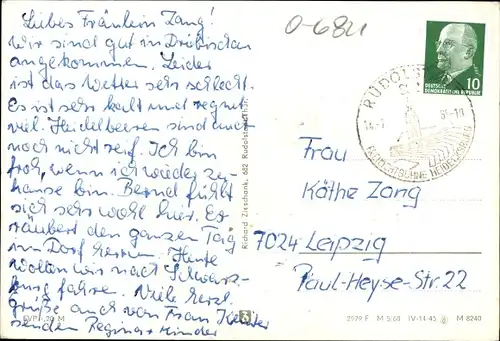 Liebes Fräulein Zang!
Wir sind gut in
angekommen. Leider
ist das Wetter sehr schlecht.
Es ist sehr kalt und regnet
viel. Heidelbeeren sind auch
noch nicht reif. Ich bin
froh, wenn ich wieder zu-
hause bin. Bernd fühlt
sich sehr wohl hier. Er
räubert den ganzen Tag
im Dorf herum. Heute
wollen wir nach Schwarz-
burg fahren. Viele herzl.
Grüße auch von Frau
senden Regina + Kinder
EVP -,20 M
Richard Zieschank, 682 Rudolstadt/Thür.
0-6821
DEUTSCHE
DEMOKRATISCHE REPUBLIK
10
RUDOLSTADT
FREILICHTBÜHNE HEIDECKSBURG
Frau
Käthe Zang
7024 Leipzig
Paul-Heyse-Str. 22
2979 F M 5/68 IV-14-45 M 8240